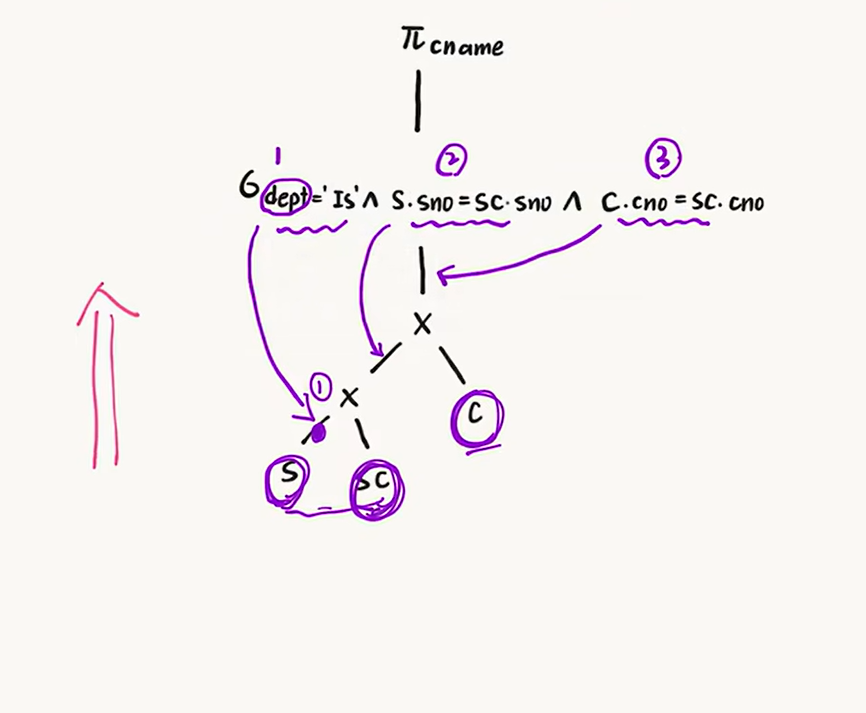 π cname
1 ② ③
σ dept='Is' ∧ S.sno=SC.sno ∧ C.cno=SC.cno
×
① ×
C
S SC